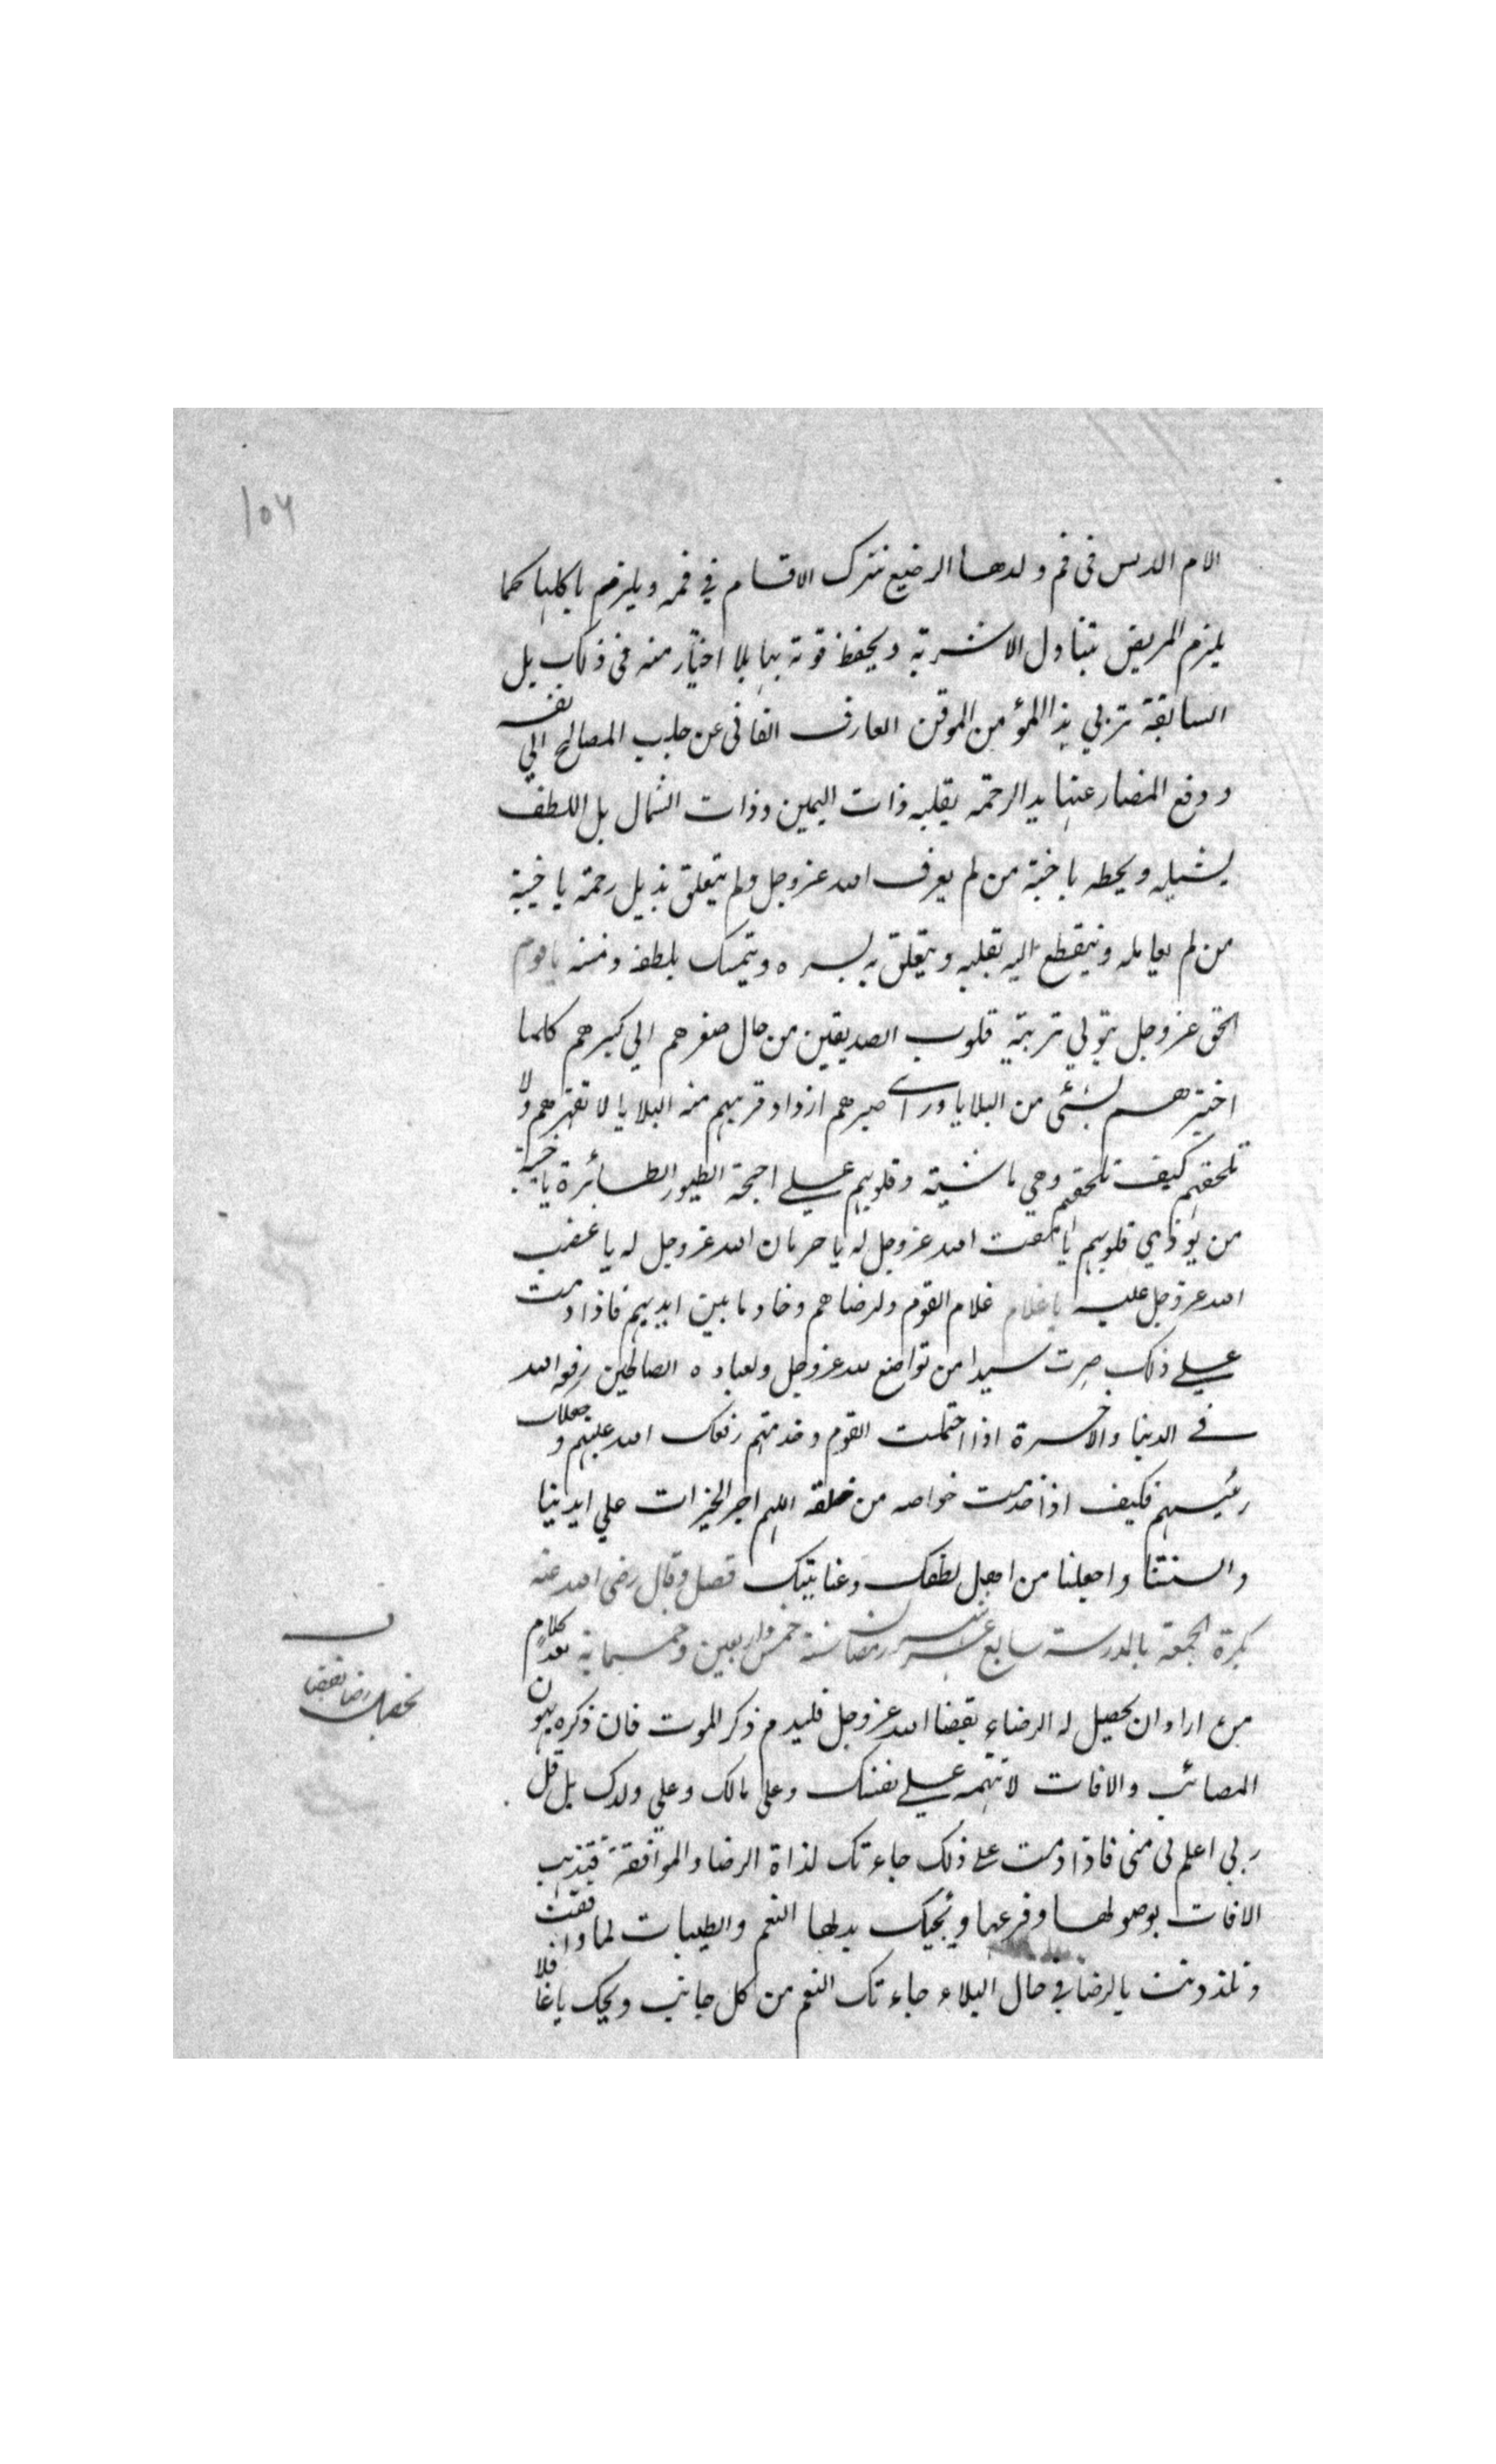 ١٥٦
الام الدبس فى فم ولدها الرضيع تترك الاقسام في فمه ويلزم باكلها كما
يلزم المريض بتناول الاشربة ويحفظ قوته بها بلا اختيار منه فى ذلك بل
السابقة تربي هذا المؤمن الموقن العارف الفانى عن جلب المصالح الي نفسه
ودفع المضار عنها يد الرحمة يقلبه ذات اليمين وذات الشمال بل اللطف
يشيله ويحطه يا خيبة من لم يعرف الله عز وجل ولم يتعلق بذيل رحمته يا خيبة
من لم يعامله وينقطع اليه بقلبه ويتعلق به بسره ويتمسك بلطفه ومننه يا قوم
الحق عز وجل يتولي تربية قلوب الصديقين من حال صغرهم الي كبرهم كلما
اختبرهم بشئ من البلايا وراى صبرهم ازداد قربهم منه البلايا لا تقهرهم ولا
تلحقهم كيف تلحقهم وهي ماشية وقلوبهم علي اجنحة الطيور الطائرة يا خيبة
من يوذي قلوبهم يا مقت الله عز وجل له يا حرمان الله عز وجل له يا غضب
الله عز وجل عليه يا غلام غلام القوم ولرضاهم وخادما بين ايديهم فاذا دمت
علي ذلك صرت سيدا من تواضع لله عز وجل ولعباده الصالحين رفعه الله
في الدنيا والاخرة اذا احتملت القوم وخدمتهم رفعك الله عليهم وجعلك
رئيسهم فكيف اذا خدمت خواصه من خلقه اللهم اجر الخيرات علي ايدينا
والسنتنا واجعلنا من اهل لطفك وعنايتك فصل وقال رضى الله عنه
بكرة الجمعة بالمدرسة سابع عشر رمضان سنة خمس واربعين وخمسماية بعد كلام
من اراد ان يحصيل له الرضاء بقضا الله عز وجل فليدم ذكر الموت فان ذكره يهون
المصائب والافات لا تتهمه علي نفسك وعلي مالك وعلي ولدك بل قل
ربي اعلم بى منى فاذا دمت على ذلك جاءتك لذاة الرضا والموافقة فتذهب
الافات بوصولها وفرعها ويجيك بدلها النعم والطيبات لما وافقت
وتلذذت بالرضا في حال البلاء جاءتك النعم من كل جانب ويحك يا غافلا
تحصيل رضا بقضا